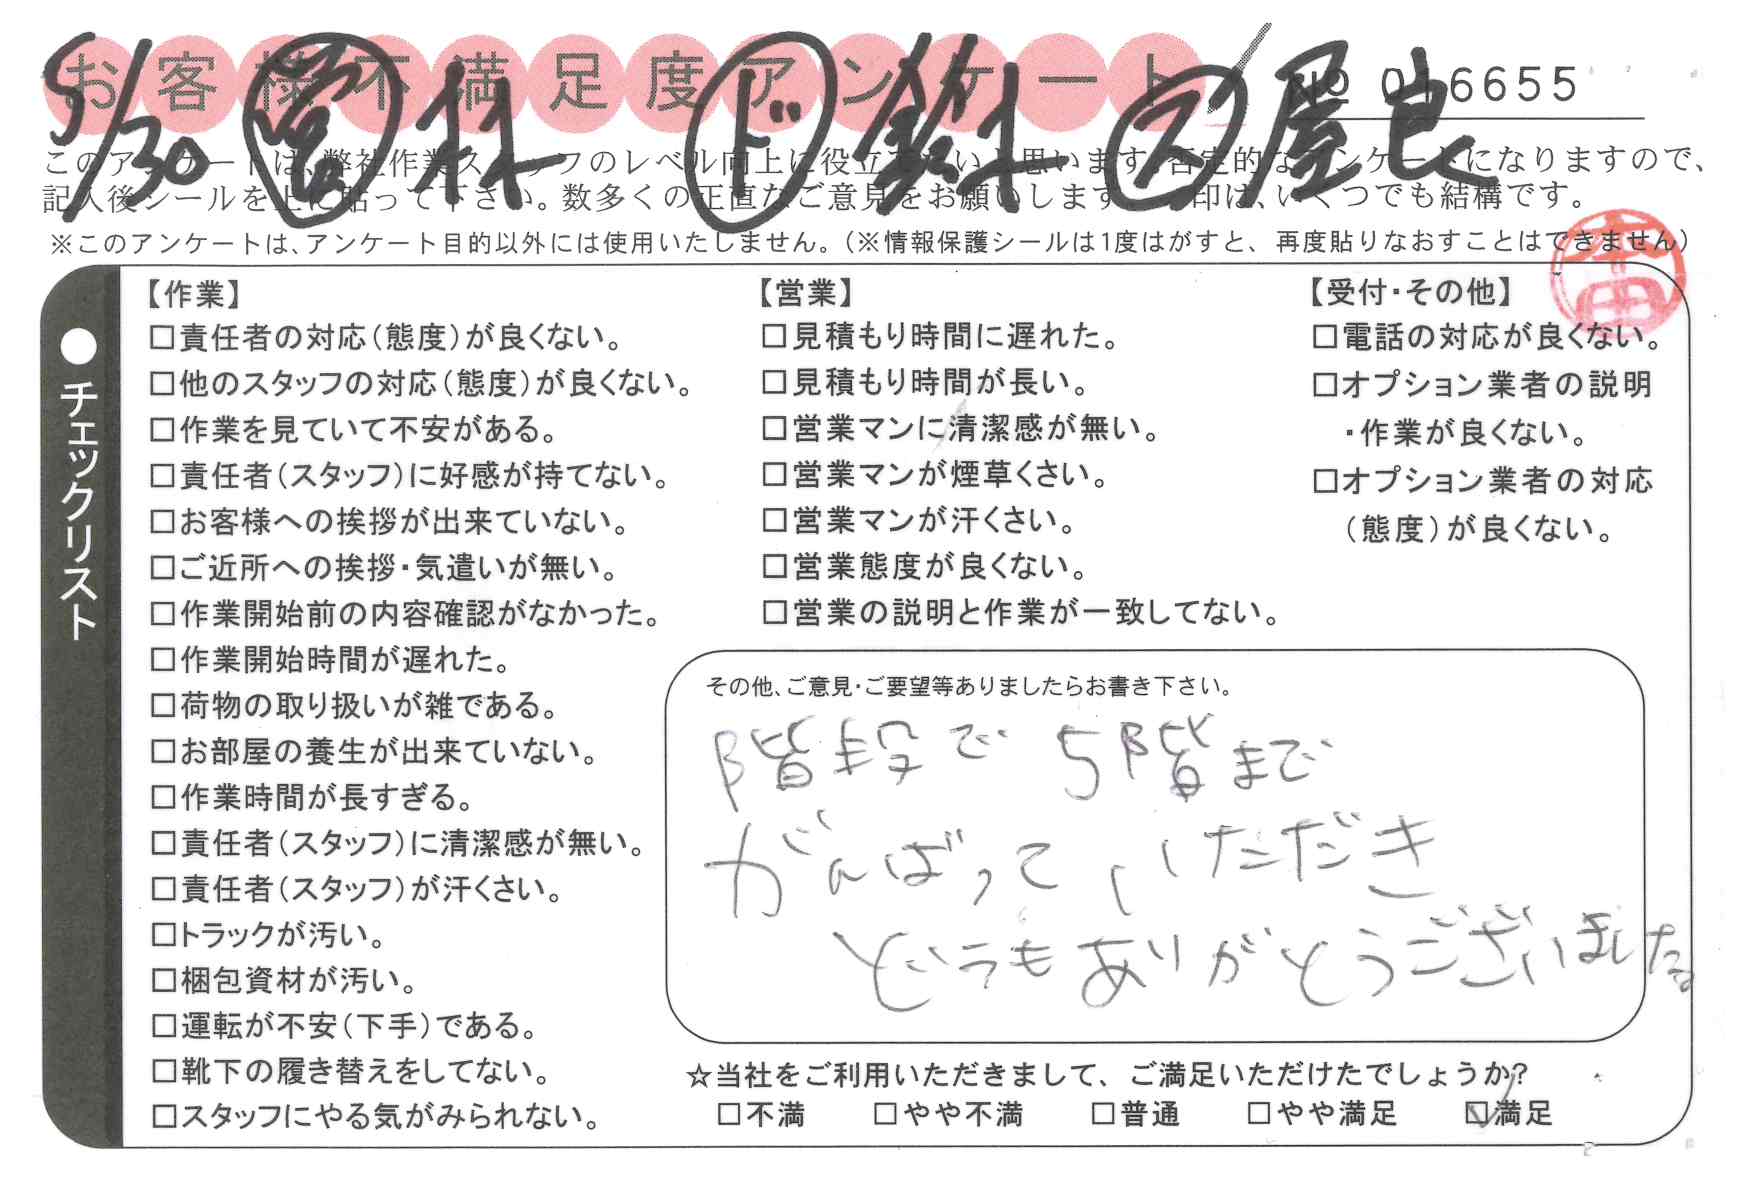 お客様不満足度アンケート
No 016655
5/30 営 林 ド 鈴木 ス 屋良
このアンケートは、弊社作業スタッフのレベル向上に役立てたいと思います。否定的なアンケートになりますので、
記入後シールを上に貼って下さい。数多くの正直なご意見をお願いします。 印は、いくつでも結構です。
※このアンケートは、アンケート目的以外には使用いたしません。(※情報保護シールは1度はがすと、再度貼りなおすことはできません)
●チェックリスト
【作業】
□責任者の対応(態度)が良くない。
□他のスタッフの対応(態度)が良くない。
□作業を見ていて不安がある。
□責任者(スタッフ)に好感が持てない。
□お客様への挨拶が出来ていない。
□ご近所への挨拶・気遣いが無い。
□作業開始前の内容確認がなかった。
□作業開始時間が遅れた。
□荷物の取り扱いが雑である。
□お部屋の養生が出来ていない。
□作業時間が長すぎる。
□責任者(スタッフ)に清潔感が無い。
□責任者(スタッフ)が汗くさい。
□トラックが汚い。
□梱包資材が汚い。
□運転が不安(下手)である。
□靴下の履き替えをしてない。
□スタッフにやる気がみられない。
【営業】
□見積もり時間に遅れた。
□見積もり時間が長い。
□営業マンに清潔感が無い。
□営業マンが煙草くさい。
□営業マンが汗くさい。
□営業態度が良くない。
□営業の説明と作業が一致してない。
【受付・その他】
□電話の対応が良くない。
□オプション業者の説明
・作業が良くない。
□オプション業者の対応
(態度)が良くない。
その他、ご意見・ご要望等ありましたらお書き下さい。
階段で5階まで
がんばっていただき
どうもありがとうございました。
☆当社をご利用いただきまして、ご満足いただけたでしょうか?
□不満 □やや不満 □普通 □やや満足 ☑満足